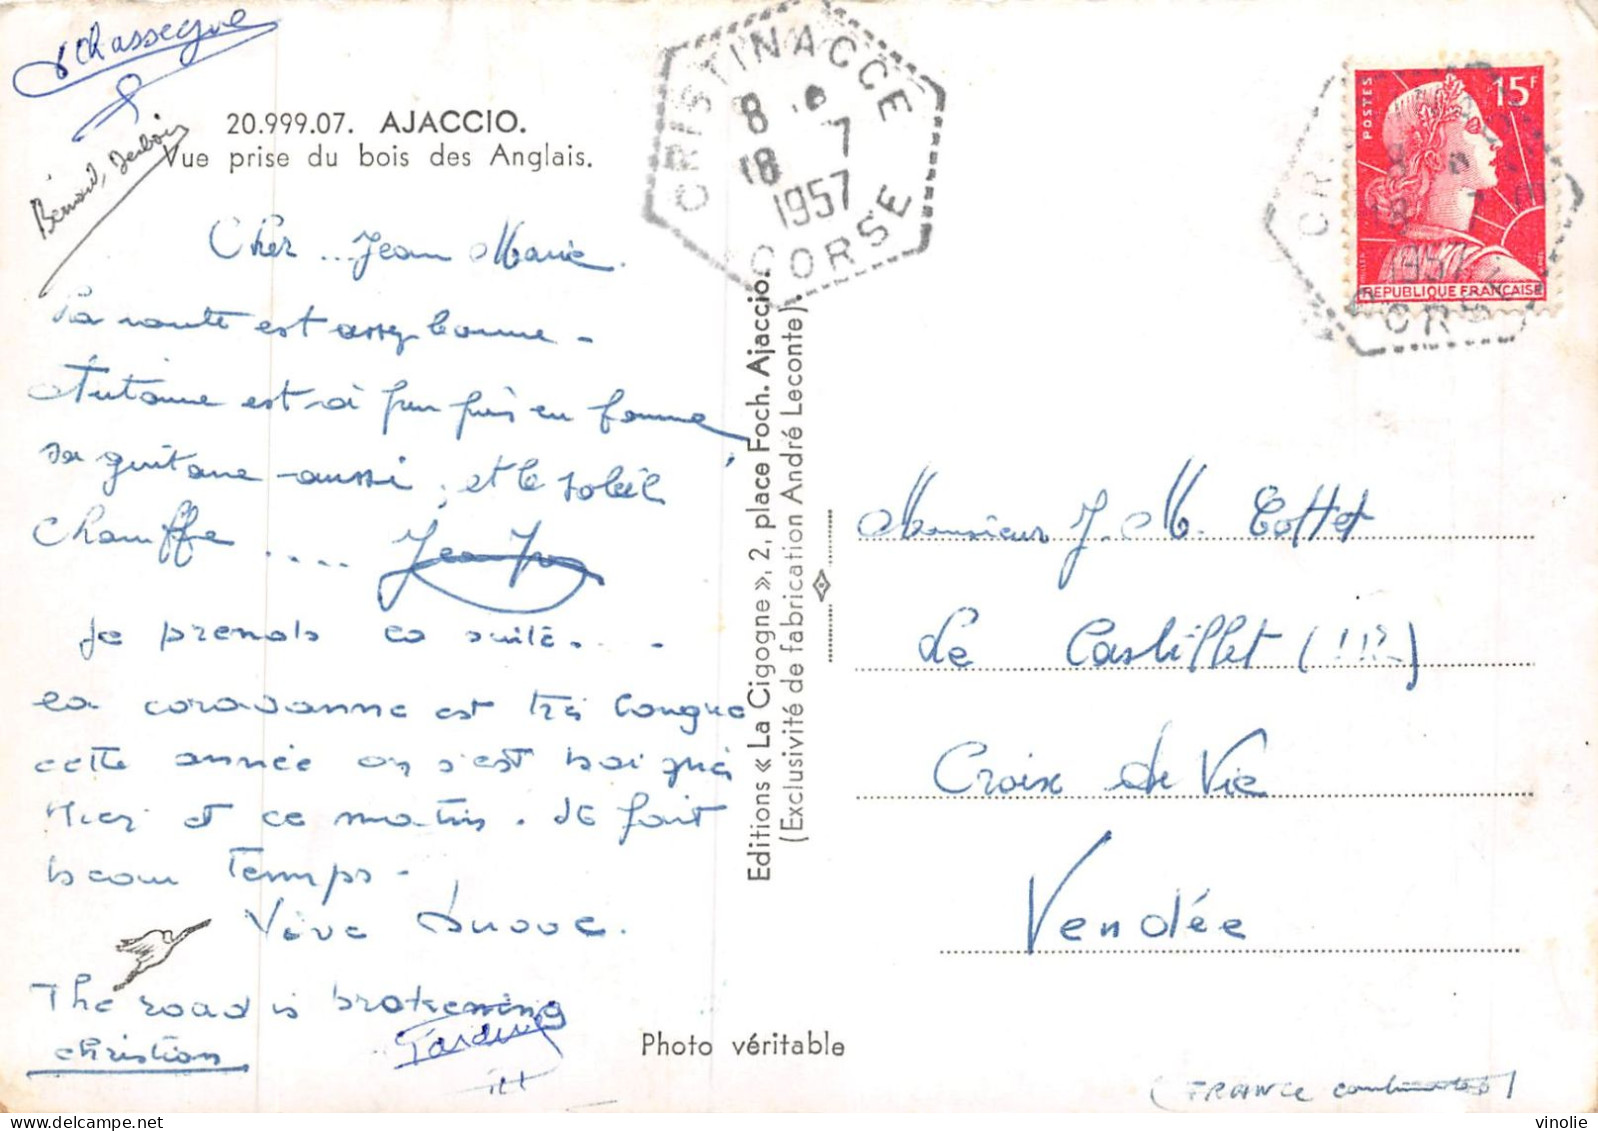 Chassegne
Bernard
20.999.07. AJACCIO.
Vue prise du bois des Anglais.
CRISTINACCE
8
18 7
1957
CORSE
POSTES 15F
REPUBLIQUE FRANÇAISE
8
18 7
1957
CORSE
Cher .. Jean Marie.
La route est assez bonne -
Antoine est à peu près en forme
sa guitare aussi, et le soleil
Chauffe .... Jean Yves
Je prends la suite...
la caravanne est très longue
cette année on s'est baigné
Hier et ce matin. il fait
beau Temps.
Vive
The road is brokening
christian
Tardive
Editions « La Cigogne », 2, place Foch. Ajaccio.
(Exclusivité de fabrication André Leconte).
Photo véritable
Monsieur J. M. Cottet
Le Castillet (!!!)
Croix de Vie
Vendée
(FRANCE continentale)
vinolie